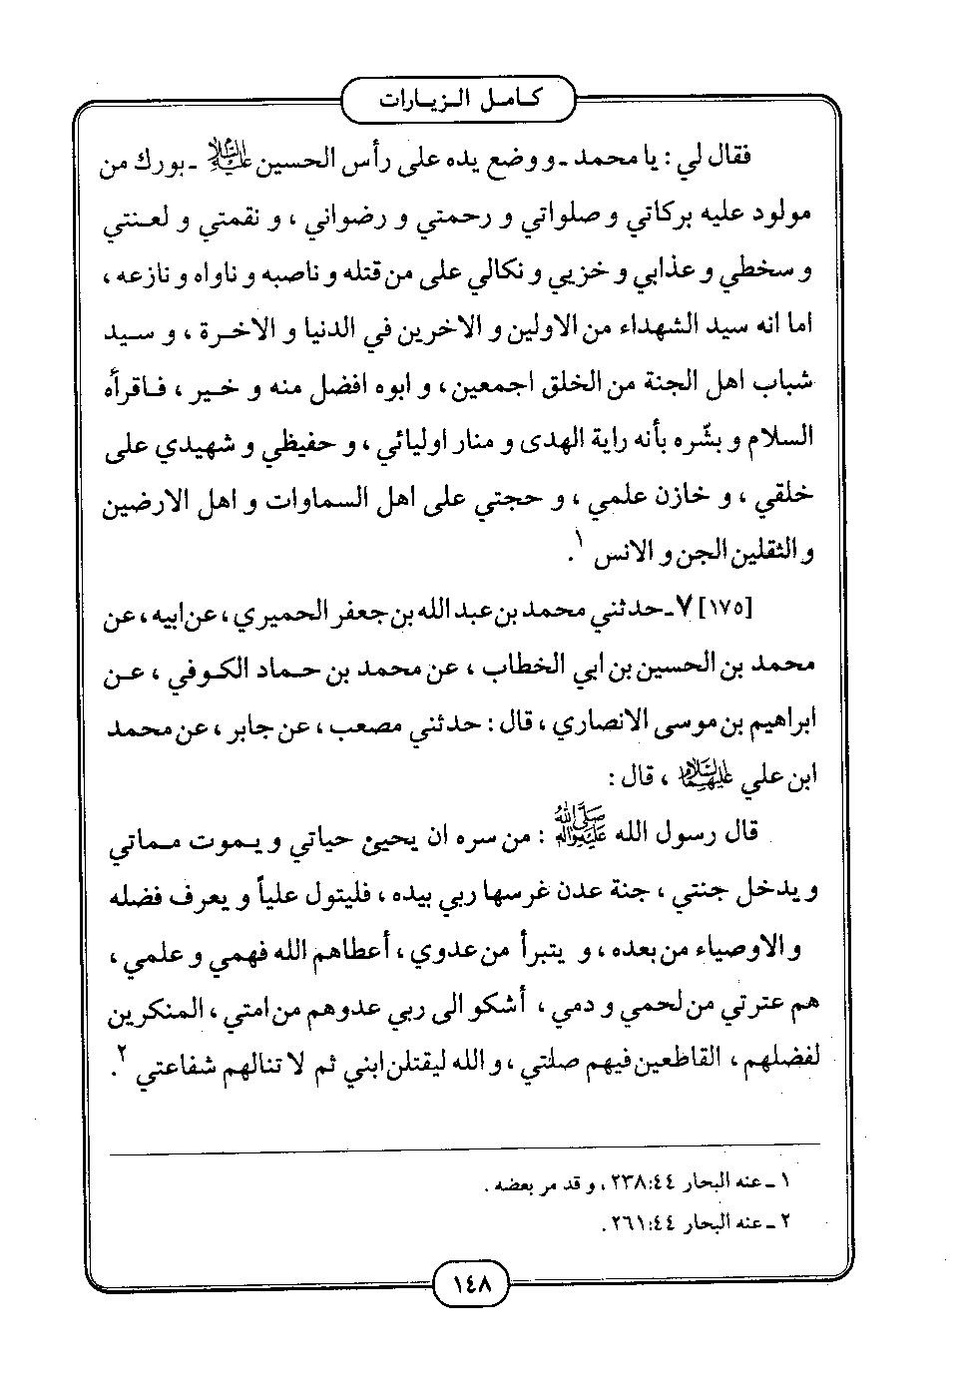 كـامـل الـزيـارات
فقال لي : يا محمد ـ و وضع يده على رأس الحسين عليه السلام ـ بورك من
مولود عليه بركاتي و صلواتي و رحمتي و رضواني ، و نقمتي و لعـنتي
و سخطي و عذابي و خزيي و نكالي على من قتله و ناصبه و ناواه و نازعه ،
اما انه سيد الشهداء من الاولين و الاخرين في الدنيا و الاخـرة ، و سـيد
شباب اهل الجنة من الخلق اجمعين ، و ابوه افضل منه و خـير ، فـاقرأه
السلام و بشّره بأنه راية الهدى و منار اوليائي ، و حفيظي و شهيدي على
خلقي ، و خازن علمي ، و حجتي على اهل السماوات و اهل الارضين
و الثقلين الجن و الانس ١.
[١٧٥] ٧ ـ حدثني محمد بن عبد الله بن جعفر الحميري ، عن ابيه ، عن
محمد بن الحسين بن ابي الخطاب ، عن محمد بن حـماد الكـوفي ، عـن
ابراهيم بن موسى الانصاري ، قال : حدثني مصعب ، عن جابر ، عن محمد
ابن علي عليهما السلام ، قال :
قال رسول الله صلى الله عليه وآله : من سره ان يحيئ حياتي و يـموت مـماتي
و يدخل جنتي ، جنة عدن غرسها ربي بيده ، فليتول علياً و يعرف فضله
و الاوصياء من بعده ، و يتبرأ من عدوي ، أعطاهم الله فهمي و علمي ،
هم عترتي من لحمي و دمي ، أشكو الى ربي عدوهم من امتي ، المنكرين
لفضلهم ، القاطعين فيهم صلتي ، و الله ليقتلن ابني ثم لا تنالهم شفاعتي ٢.
١ ـ عنه البحار ٤٤:٢٣٨ ، و قد مر بعضه .
٢ ـ عنه البحار ٤٤:٢٦١ .
١٤٨